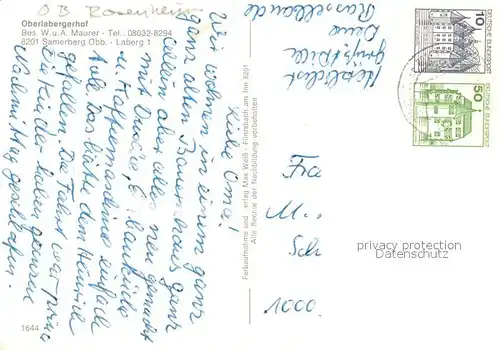 OB Rosenheim
Oberlabergerhof
Bes. W. u. A. Maurer - Tel.: 08032-8294
8201 Samerberg Obb. - Laberg 1
Liebe Oma!
Wir wohnen in einem ganz
ganz alten Bauernhaus ganz
allein aber alles neu gemacht
mit Dusche, E.
u. Kaffeemaschine einfach
toll. Das hätte dem
gefallen. Die Fahrt war prima
die Kinder haben
Nachmittag geschlafen.
Herzlichst
grüßt Dich
Deine
1644
Farbaufnahme und Verlag Max Weiß - Flintsbach am Inn 8201
Alle Rechte der Nachbildung vorbehalten
10
DEUTSCHE BUNDESPOST
50
DEUTSCHE BUNDESPOST
Fra
M
Sch
0000
privacy protection
Datenschutz